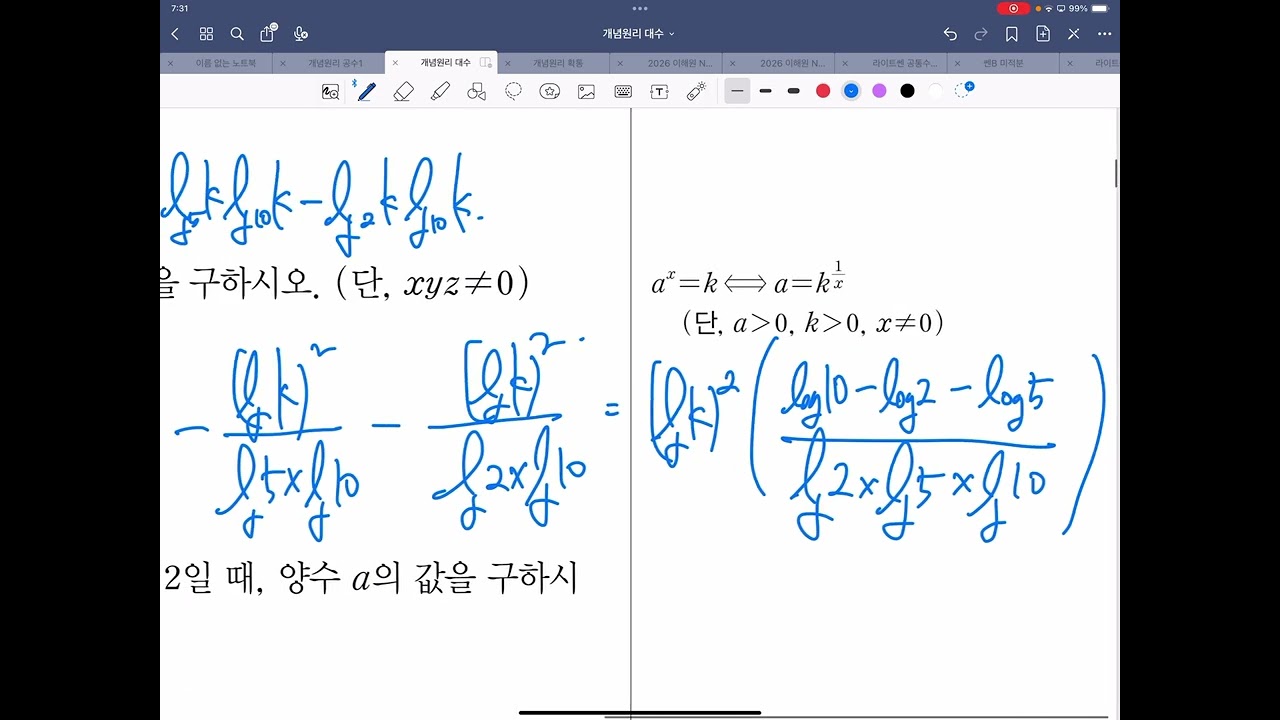 7:31
99%
개념원리 대수
이름 없는 노트북
개념원리 공수1
개념원리 대수
개념원리 확통
2026 이해원 N...
2026 이해원 N...
라이트쎈 공통수...
쎈B 미적분
라이트
log₅k log₁₀k − log₂k log₁₀k.
을 구하시오. (단, xyz≠0)
− (log k)² / (log 5 × log 10) − (log k)² / (log 2 × log 10) = (log k)² ( (log 10 − log 2 − log 5) / (log 2 × log 5 × log 10) )
2일 때, 양수 a의 값을 구하시
aˣ=k ⟺ a=k^(1/x)
(단, a>0, k>0, x≠0)